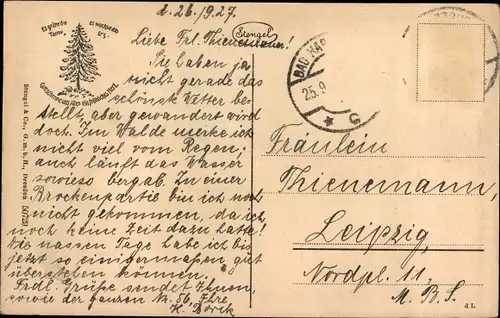 d. 26./9.27.
Es grüne die Tanne,
Es wachse das Erz,
Liebe Frl. Thienemann!
Stengel
Sie haben ja
nicht gerade das
schönste Wetter be-
stellt, aber gewandert wird
doch. Im Walde merke ich
nicht viel vom Regen;
auch läuft das Wasser
sowieso bergab. Zu einer
Brockenpartie bin ich noch
nicht gekommen, da ich
noch keine Zeit dazu hatte!
Die nassen Tage habe ich bis
jetzt so einigermaßen gut
überstehen können.
Frdl. Grüße sendet Ihnen,
sowie der ganzen Nr. 56, Ihre
Stengel & Co., G. m. b. H., Dresden
BAD HAR
25.9
Fräulein
Thienemann,
Leipzig,
Nordpl. 11
M. B. S.